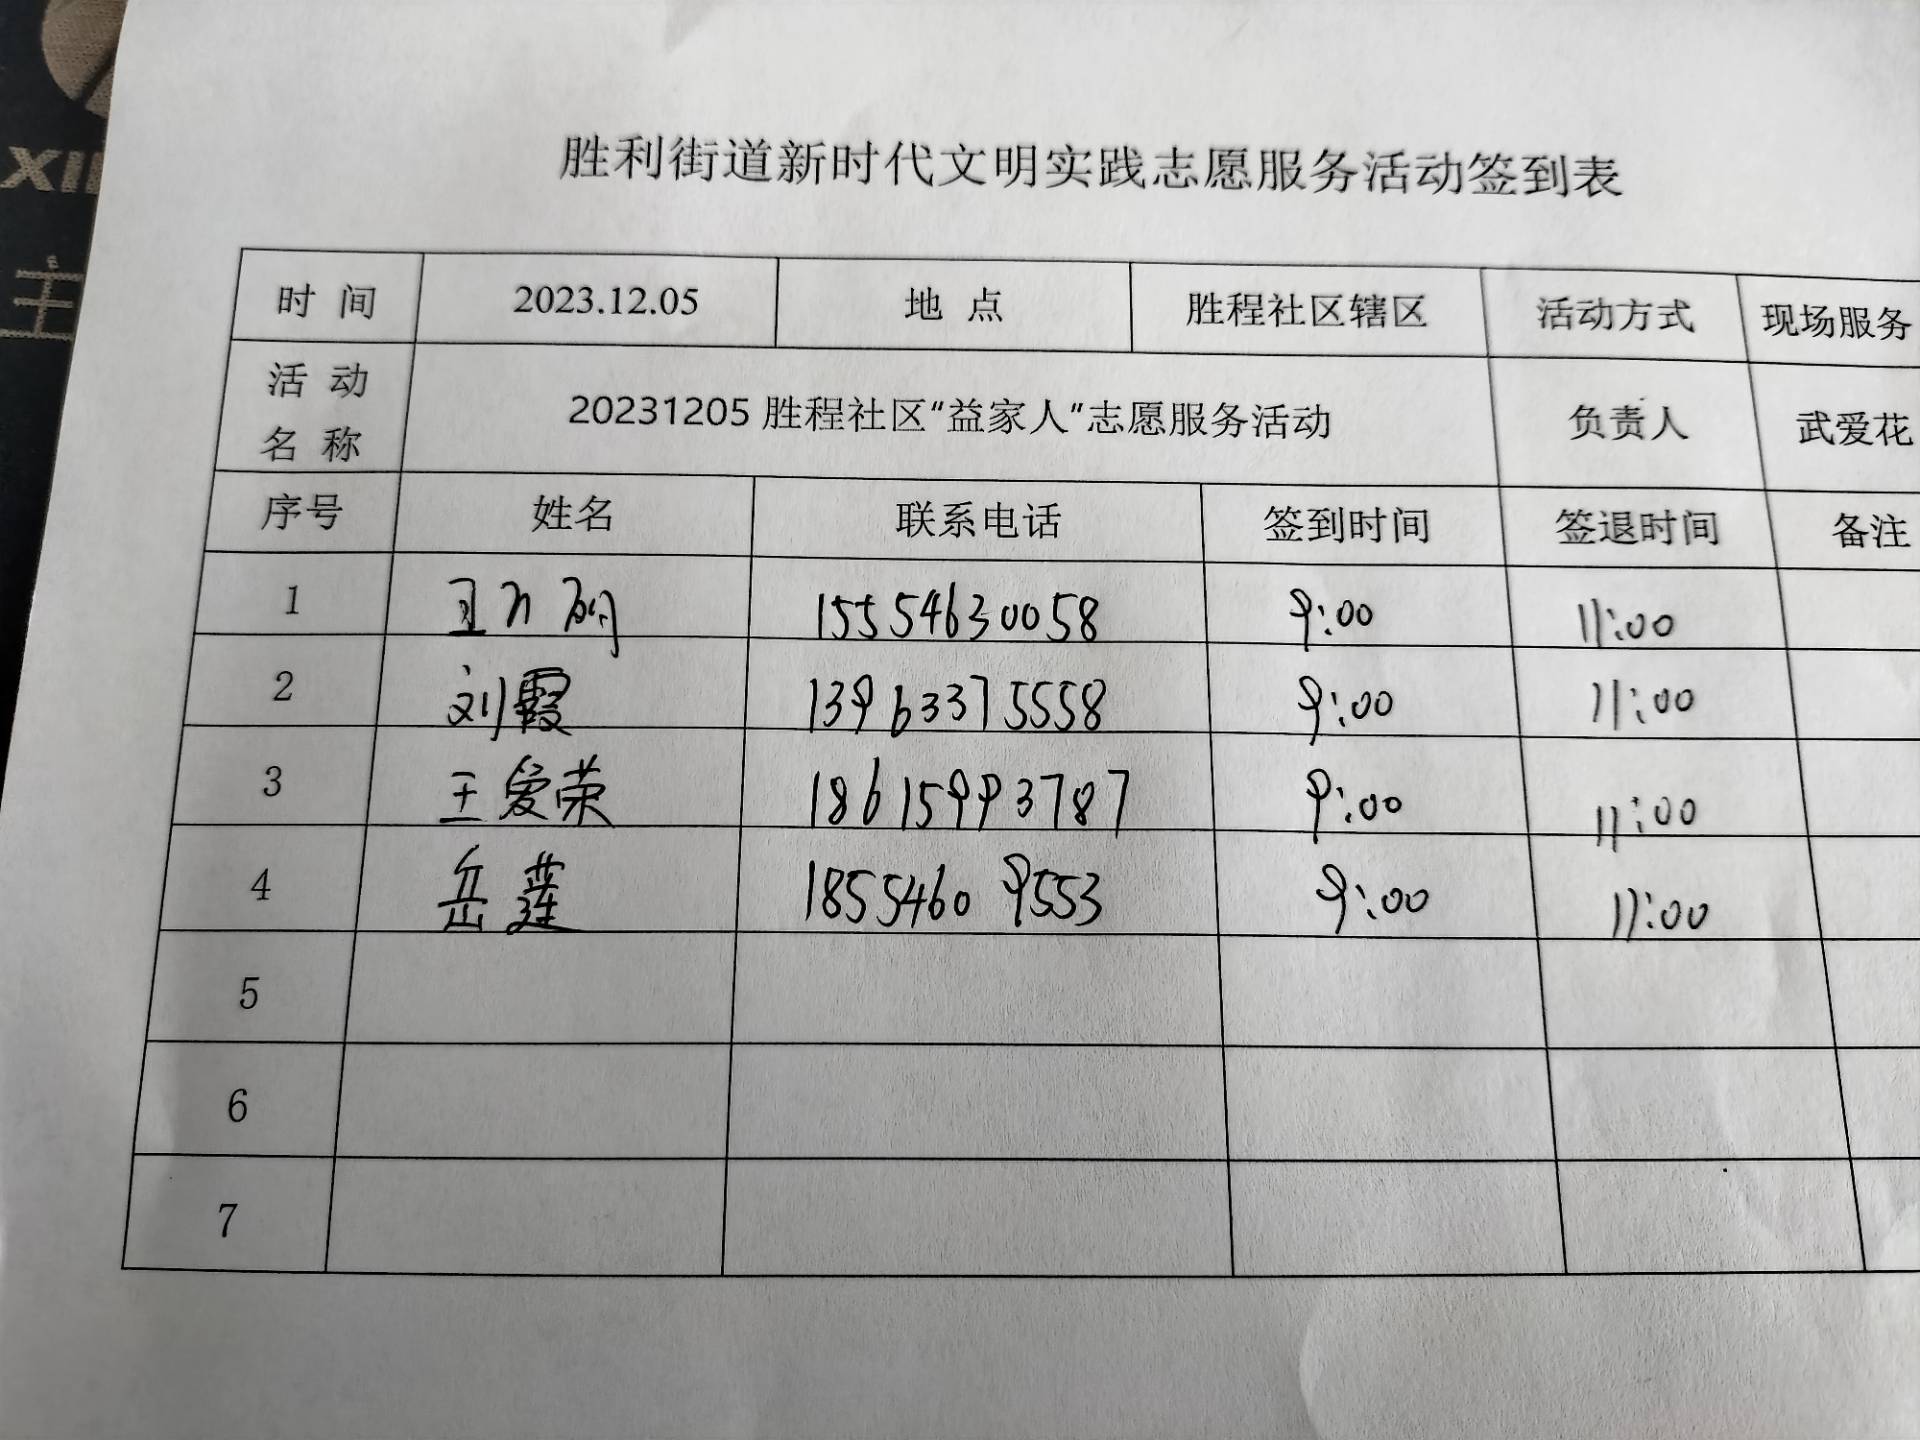 胜利街道新时代文明实践志愿服务活动签到表
时 间 2023.12.05 地 点 胜程社区辖区 活动方式 现场服务
活 动
名 称 20231205胜程社区“益家人”志愿服务活动 负责人 武爱花
序号 姓名 联系电话 签到时间 签退时间 备注
1 15554630058 9:00 11:00
2 刘霞 13963375558 9:00 11:00
3 王爱荣 18615993787 9:00 11:00
4 岳莲 18554609553 9:00 11:00
5
6
7
XII
主